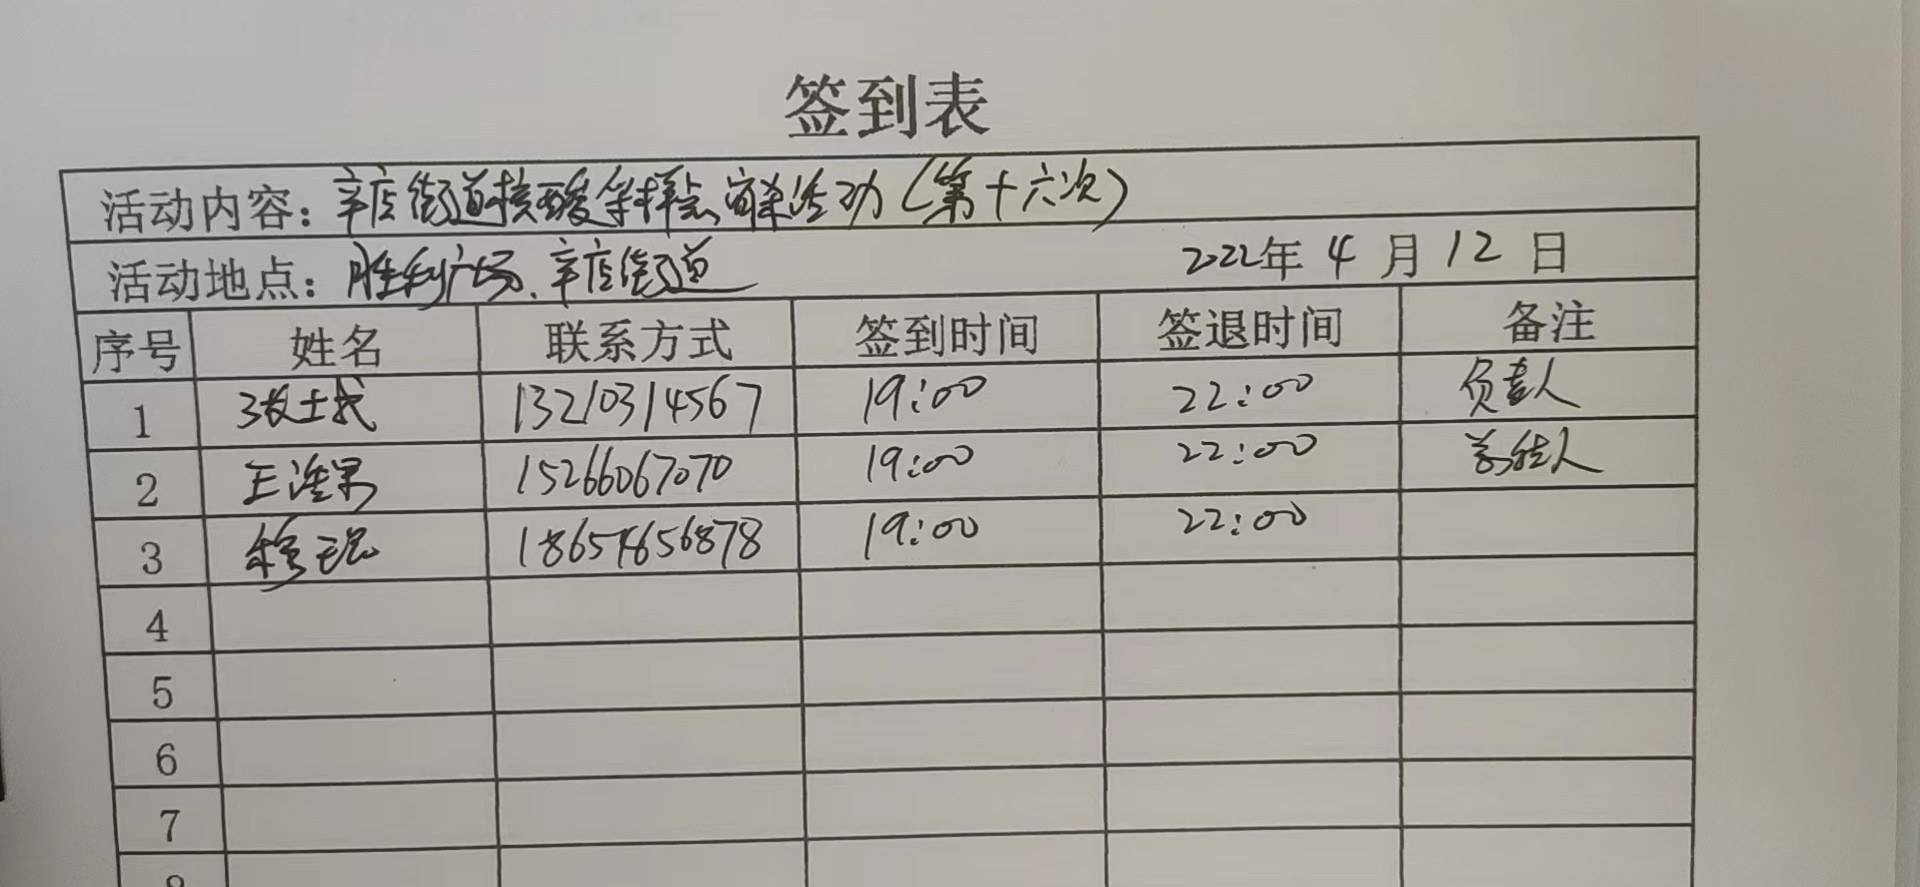 签到表
活动内容：辛店街道核酸采样点消杀活动（第十六次）
活动地点：胜利广场、辛店街道 2022年4月12日
序号 姓名 联系方式 签到时间 签退时间 备注
1 13210314567 19:00 22:00 负责人
2 15266067070 19:00 22:00
3 19:00 22:00
4
5
6
7
8